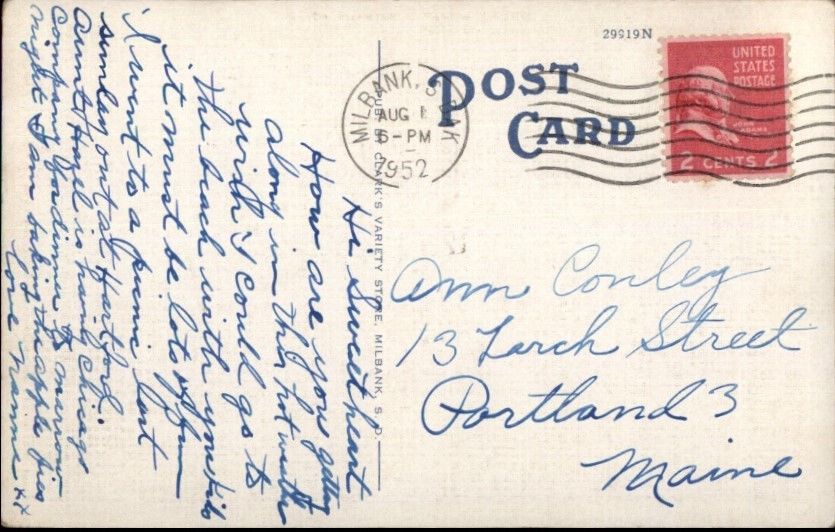 29919N
POST
CARD
UNITED
STATES
POSTAGE
JOHN
ADAMS
2 CENTS 2
MILBANK, S. DAK
AUG 1
5-PM
1952
CLARK'S VARIETY STORE, MILBANK, S. D.
Hi Sweetheart
How are you getting
along in this hot weather
wish I could go to
the beach with you kids
it must be lots of fun
I went to a picnic last
sunday out at Hartford.
Aunt Hazel is having Chicago
Company for dinner to morrow
night I am baking the apple pies
love Nannie xx
Ann Conley
13 Larch Street
Portland 3
Maine